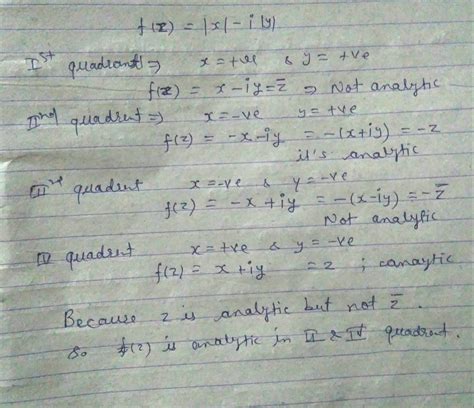 f(z) = |x| - i |y|
Ist quadrant ⇒ x = +ve & y = +ve
f(z) = x - iy = z̄ ⇒ Not analytic
IInd quadrent ⇒ x = -ve y = +ve
f(z) = -x - iy = -(x+iy) = -z
it's analytic
quadrent x = -ve & y = -ve
f(z) = -x + iy = -(x-iy) = -z̄
Not analytic
IV quadrent x = +ve & y = -ve
f(z) = x + iy = z ; canaytic
Because z is analytic but not z̄.
So f(z) is analytic in II & IV quadrent.